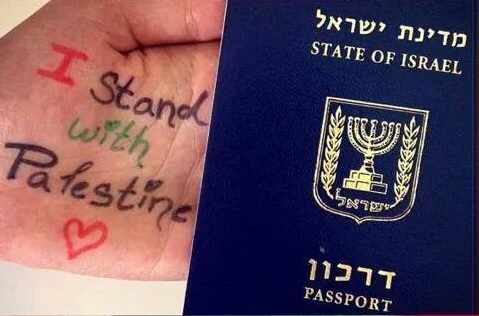 I Stand
with
Palestine
מדינת ישראל
STATE OF ISRAEL
ישראל
דרכון
PASSPORT